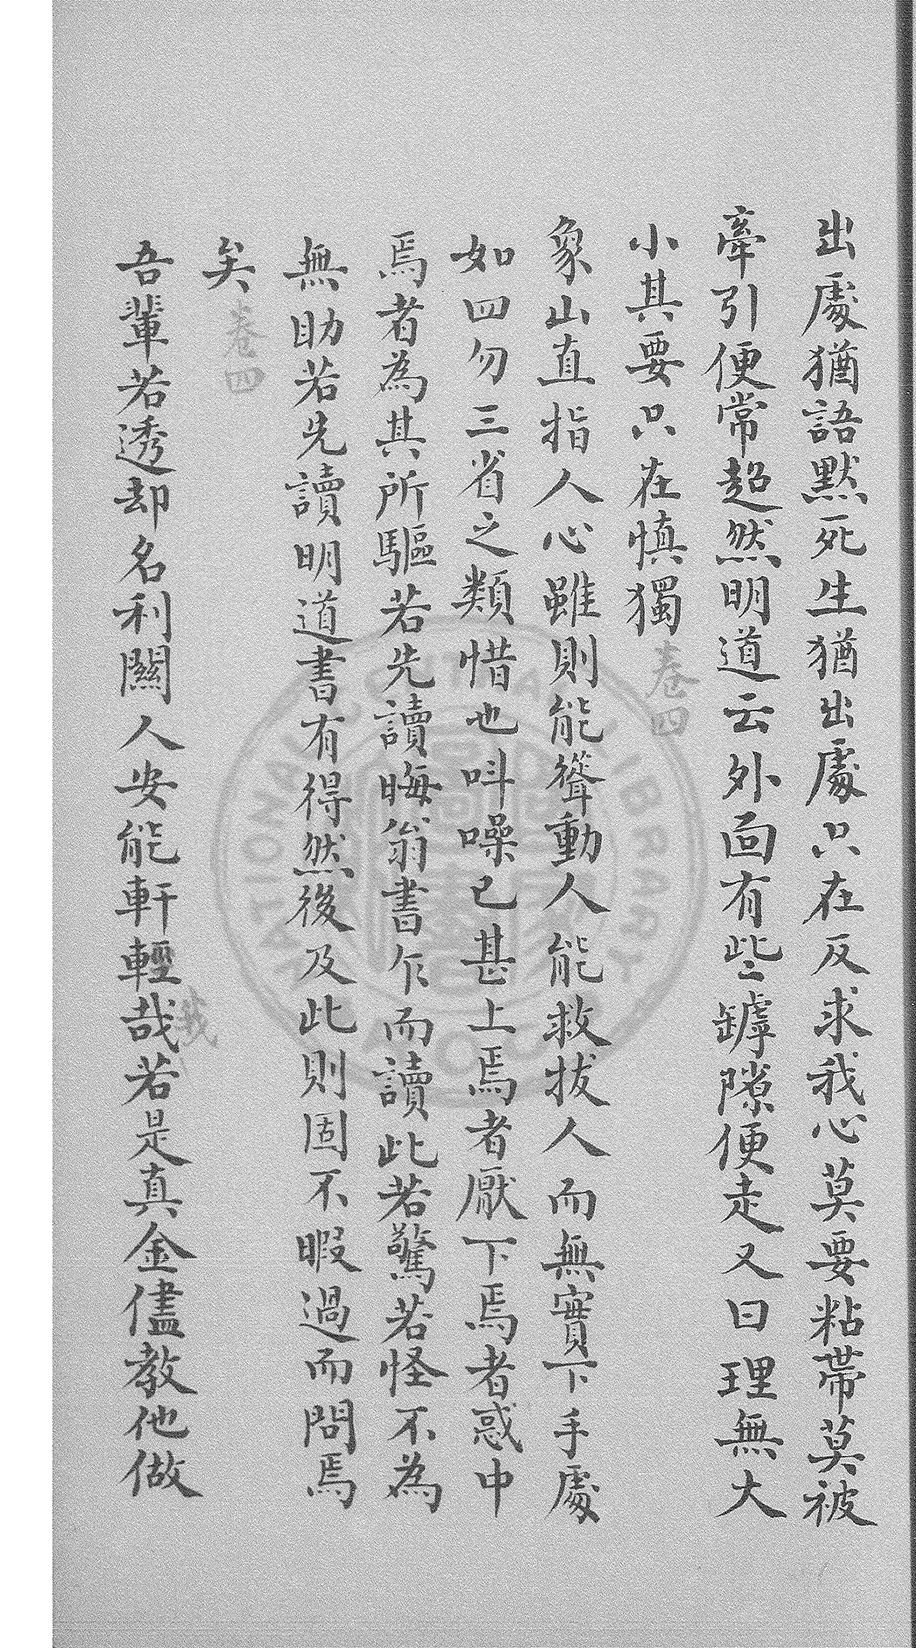 出處猶語默死生猶出處只在反求我心莫要粘帶莫被
牽引便常超然明道云外面有些罅隙便走又曰理無大
小其要只在慎獨 卷四
象山直指人心雖則能聳動人能救拔人而無實下手處
如四勿三省之類惜也呌噪已甚上焉者厭下焉者惑中
焉者為其所驅若先讀晦翁書乍而讀此若驚若怪不為
無助若先讀明道書有得然後及此則固不暇過而問焉
矣 卷四
吾輩若透却名利關人安能軒輕哉若是真金儘教他做
NATIONAL CENTRAL LIBRARY